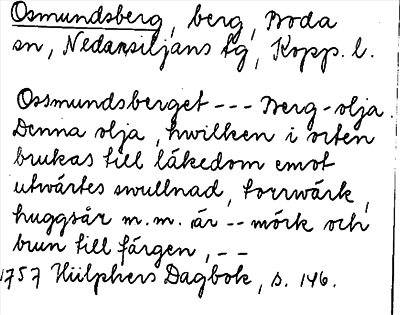 Osmundsberg, berg, Boda
sn, Nedansiljans tg, Kopp. l.
Ossmundsberget --- Berg-olja.
Denna olja, hwilken i orten
brukas till läkedom emot
utwärtes swullnad, torrwärk,
huggsår m.m. är -- mörk och
brun till färgen, --
1757 Hülphers Dagbok, s. 146.